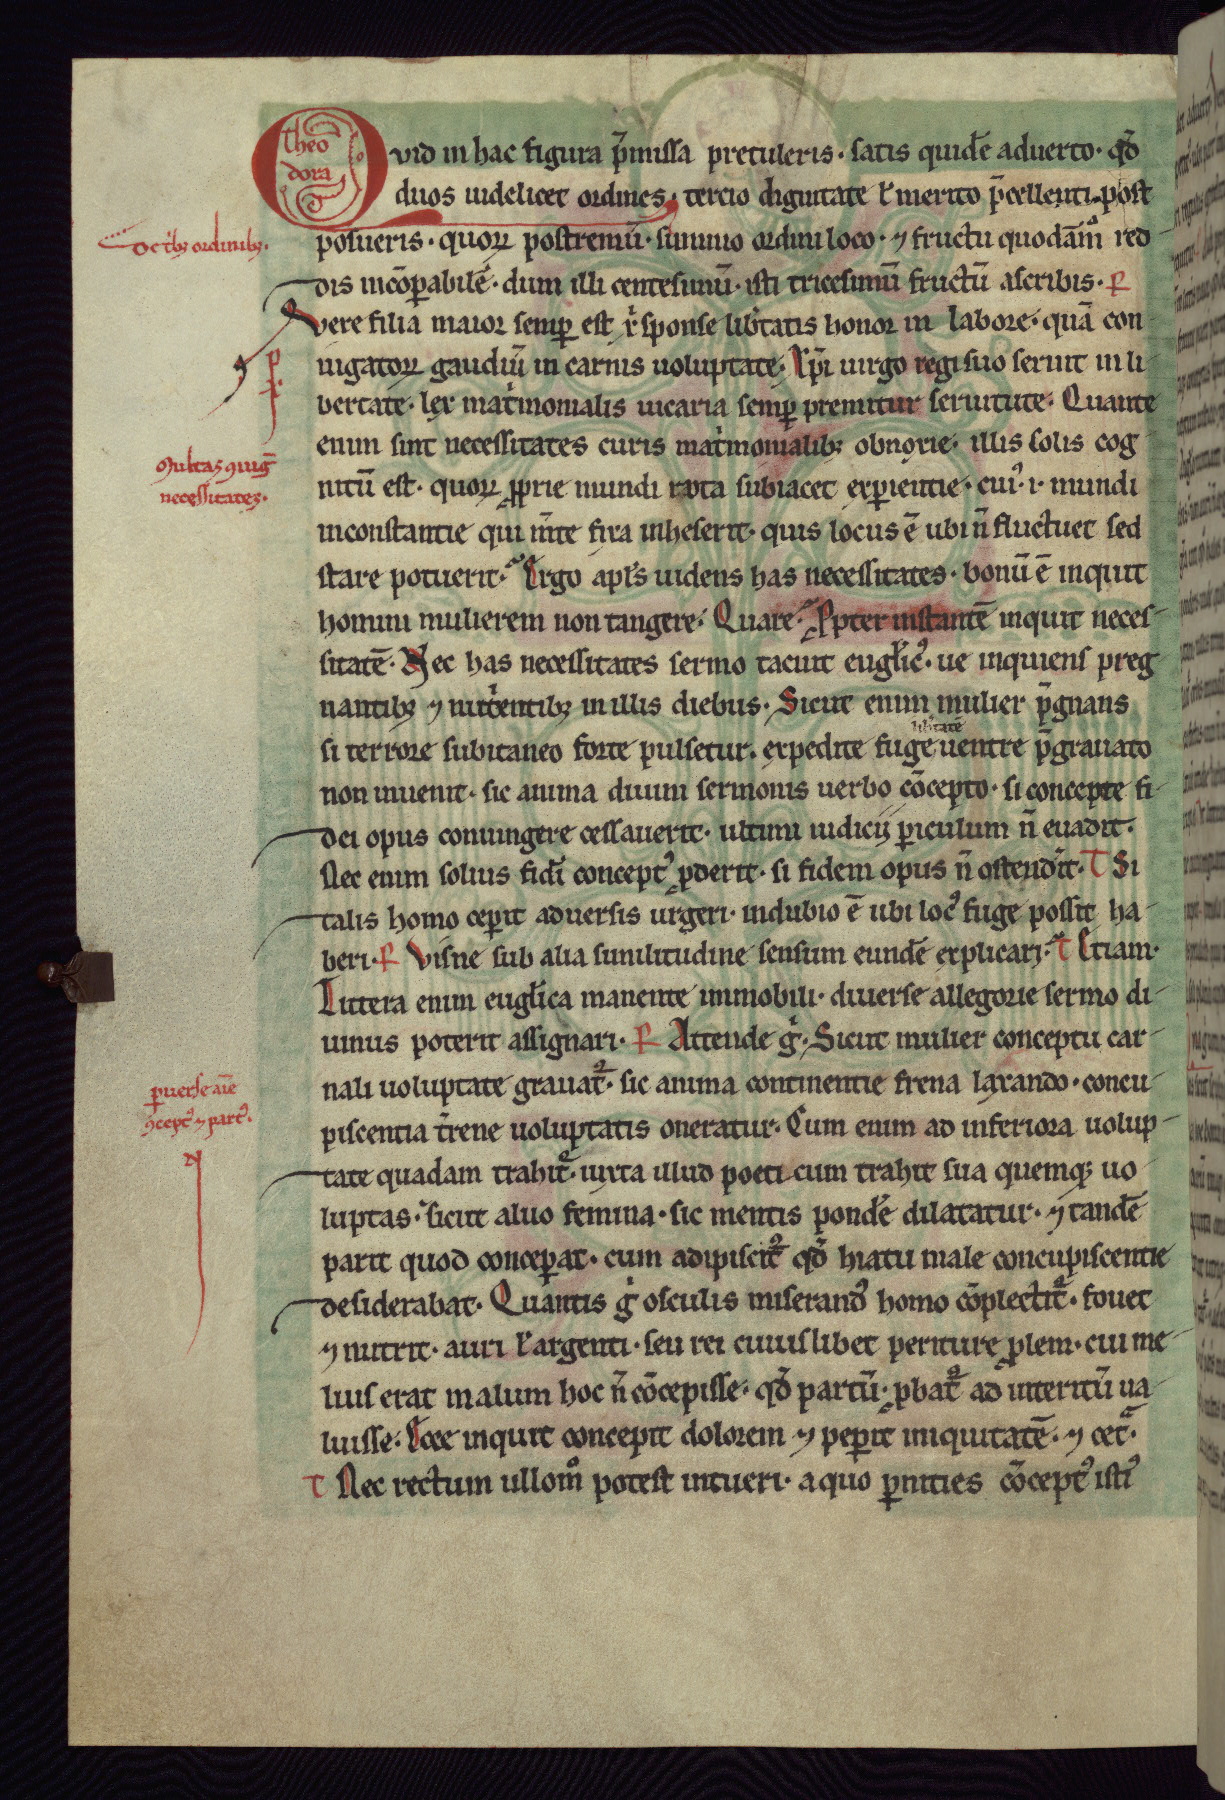 theo
dora
Quid in hac figura p̄missa pretuleris· satis quidē aduerto· qd̄
duos uidelicet ordines· tercio dignitate ł merito p̄cellenti post
De tͥbꝫ ordinibꝫ.
posueris· quoꝝ postremū· summo ordini loco· ⁊ fructu quodāmͦ red
dis incōparabilē· dum illi centesimū· isti tricesimū fructū ascribis· P
Vere filia maior semꝑ est xͥ sponse libͬtatis honor in labore· quā con
iugatoꝝ gaudiū in carnis uoluptate· Xp̄i uirgo regi suo seruit in li
bertate· lex matͥmonialis uicaria semꝑ premitur seruitute· Quante
enim sint necessitates curis matͥmonialibꝫ obnoxie· illis solis cog
Multas ꝯiugū
nitū est· quoꝝ ꝓprie mundi rota subiacet experientie· cuiꝰ· i· mundi
necessitates.
inconstantie qui mn̄te fixa inheserit· quis locus ē ubi n̄ fluctuet sed
stare potuerit· Ergo apl's uidens has necessitates· bonū ē inquit
homini mulierem non tangere· Quare· Ꝓpter instantē inquit neces
sitatē· Nec has necessitates sermo tacuit eugl'icꝰ· ue inquiens preg
nantibꝫ ⁊ nutͥentibꝫ in illis diebus· Sicut enim mulier p̄gnans
libͥtatē
si terrore subitaneo forte pulsetur· expedite fuge uentre p̄grauato
non inuenit· sic anima diuini sermonis uerbo cōcepto· si concepte fi
dei opus coniungere cessauerit· ultimi iudicij ꝑiculum n̄ euadit·
Nec enim solius fidi conceptꝰ ꝓderit· si fidem opus n̄ ostendͥit· T Si
talis homo ceperit aduersis urgeri· indubio ē ubi locꝰ fuge possit ha
beri· P Visne sub alia similitudine sensum eundē explicari· T Etiam·
Littera enim eugl'ica manente immobili· diuerse allegorie sermo di
uinus poterit assignari· P Attende gͥ· Sicut mulier conceptu car
ꝑuerse aīe
nali uoluptate grauat᷑· sic anima continentie frena laxando· concu
ꝯceptꝰ ⁊ partꝰ.
piscentia t̄rene uoluptatis oneratur· Cum enim ad inferiora uolup
tate quadam trahit᷑· iuxta illud poeti cum trahit sua quemqꝫ uo
luptas· sicut aluo femina· sic mentis pondē dilatatur· ⁊ tandē
parit quod conceꝑat· cum adipiscit᷑ qd̄ hiatu male concupiscentie
desiderabat· Quantis gͥ osculis miserandꝰ homo cōplectit᷑· fouet
⁊ nutrit· auri ł argenti· seu rei cuiuslibet periture ꝓlem· cui me
lius erat malum hoc n̄ cōcepisse· qd̄ partū· ꝓbat᷑ ad interitū ua
luisse· Ecce inquit concepit dolorem ⁊ peꝑit iniquitatē· ⁊ cet᷑·
T Nec rectum ullomͦ potest intueri· a quo ꝑnities cōceptꝰ istiꝰ